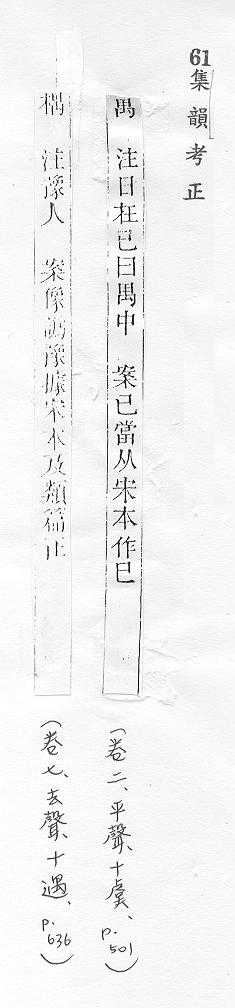 61集韻考正
禺　注日在已曰禺中　案已當从宋本作巳
（卷二、平聲、十虞、p. 501）
注豫人　案像譌豫據宋本及類篇正
（卷七、去聲、十遇、p. 636）